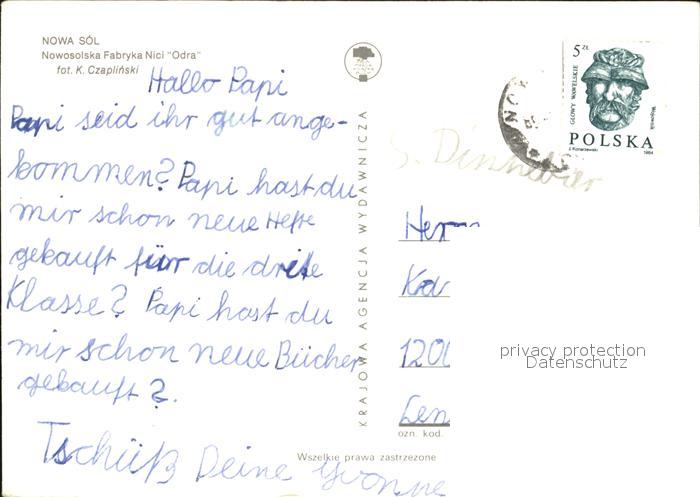 NOWA SÓL
Nowosolska Fabryka Nici "Odra"
fot. K. Czapliński
Hallo Papi
Papi seid ihr gut ange-
kommen? Papi hast du
mir schon neue Hefte
gekauft für die dritte
Klasse? Papi hast du
mir schon neue Bücher
gekauft?
Tschüß Deine Yvonne
KRAJOWA AGENCJA WYDAWNICZA
Wszelkie prawa zastrzeżone
5 ZŁ
GŁOWY WAWELSKIE
Wojownik
POLSKA
J. Konarzewski
1984
Herrn
120
Len
ozn. kod.
privacy protection
Datenschutz